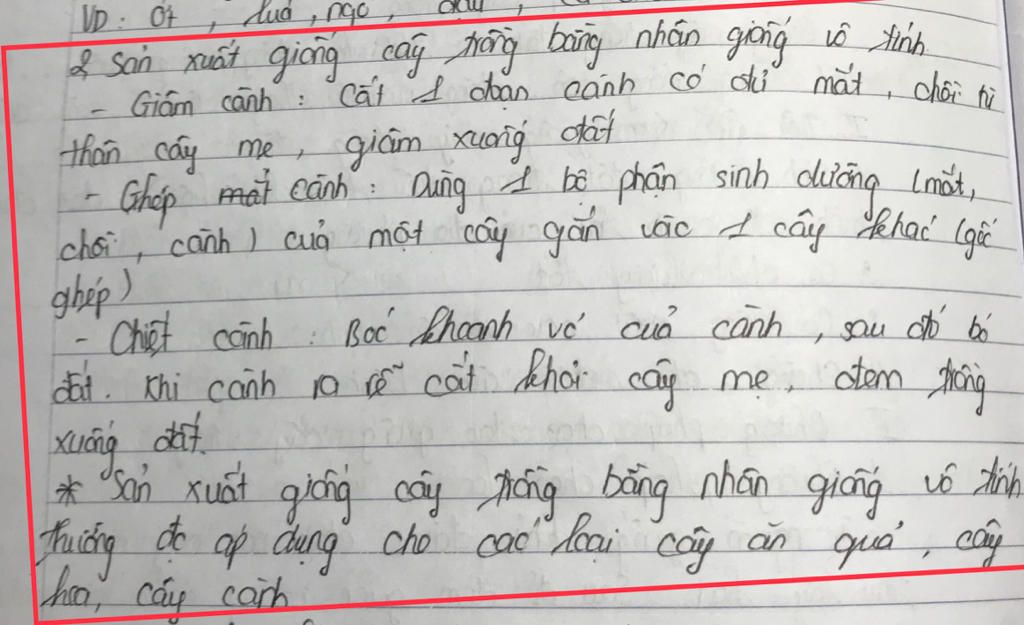 VD: ớt, lúa, ngô,
2 Sản xuất giống cây trồng bằng nhân giống vô tính
- Giâm cành: Cắt 1 đoạn cành có đủ mắt, chồi từ
thân cây mẹ, giâm xuống đất
- Ghép mắt cành: Dùng 1 bộ phận sinh dưỡng (mắt,
chồi, cành) của một cây gắn vào 1 cây khác (gốc
ghép)
- Chiết cành: Bóc khoanh vỏ của cành, sau đó bó
đất. Khi cành ra rễ cắt khỏi cây mẹ, đem trồng
xuống đất.
* Sản xuất giống cây trồng bằng nhân giống vô tính
thường đc áp dụng cho các loại cây ăn quả, cây
hoa, cây cảnh